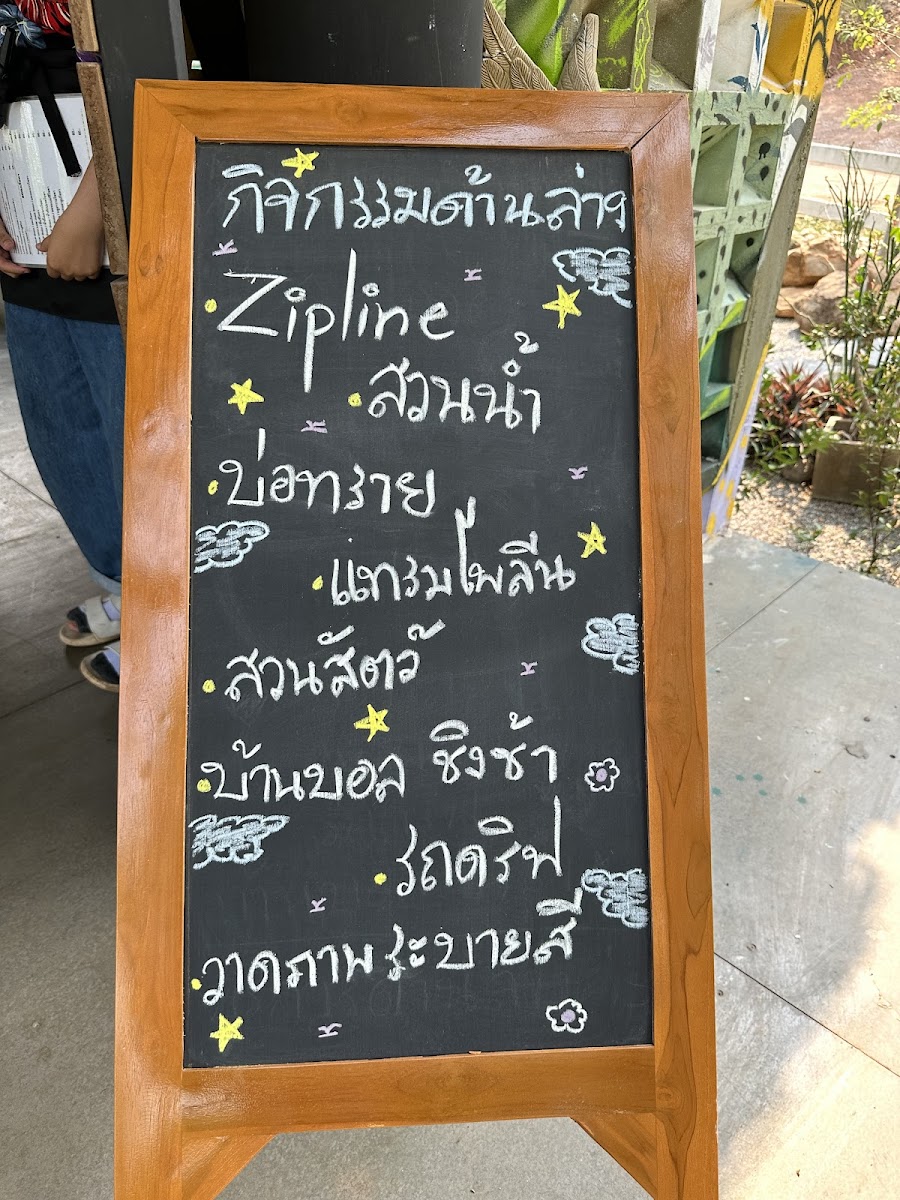 กิจกรรมด้านล่าง
Zipline
สวนน้ำ
บ่อทราย
แทรมโพลีน
สวนสัตว์
บ้านบอล ชิงช้า
รถดริฟ
วาดภาพระบายสี